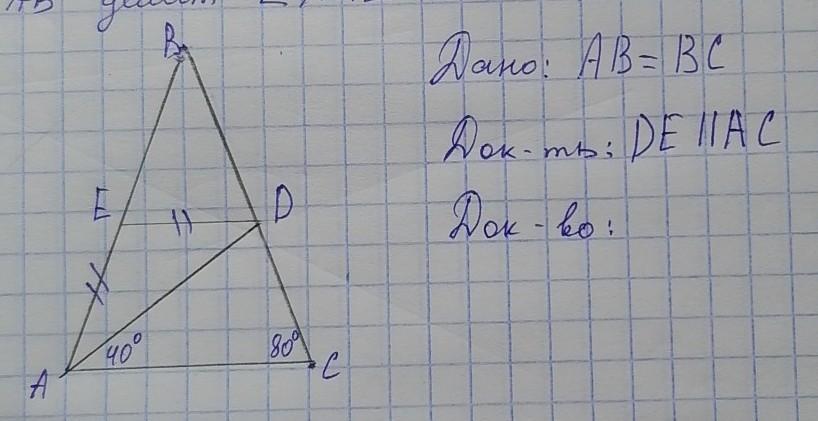 B
E
D
40°
80°
A
C
Дано: AB = BC
Док-ть: DE || AC
Док-во: